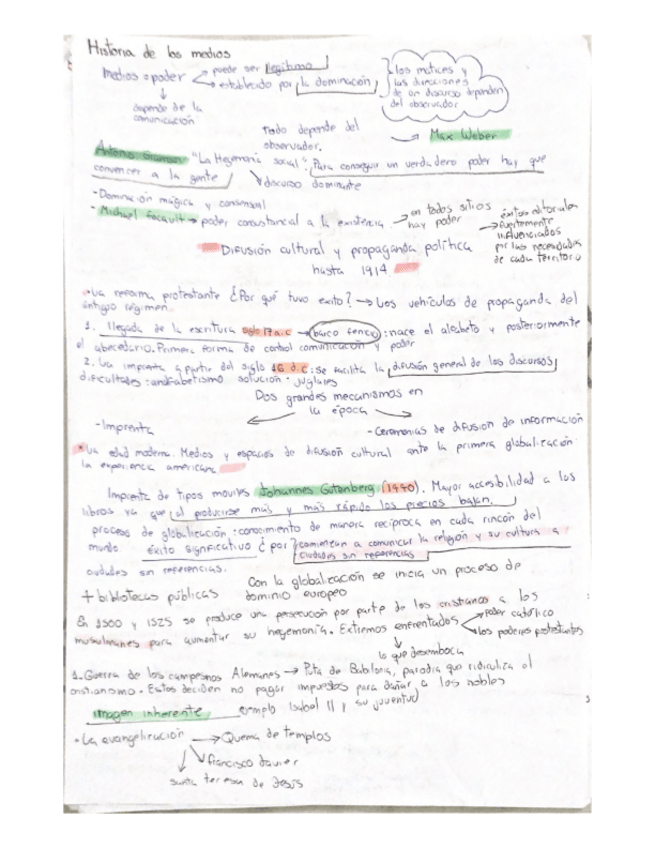 Historia de los medios
Medios = poder
puede ser legítimo
establecido por la dominación
los matices y
las direcciones
de un discurso dependen
del observador
depende de la
comunicación
todo depende del
observador.
Max Weber
Antonio "La Hegemonía social": Para conseguir un verdadero poder hay que
convencer a la gente
discurso dominante
- Dominación mágica y consensual
- Michael Focault → poder consustancial a la existencia
en todos sitios
hay poder
éxitos editoriales
fuertemente
influenciados
por las necesidades
de cada territorio
Difusión cultural y propaganda política
hasta 1914
La reforma protestante ¿Por qué tuvo éxito? → Los vehículos de propaganda del
antiguo régimen.
1. llegada de la escritura siglo a.c → : nace el alfabeto y posteriormente
el abecedario. Primera forma de control comunicación y poder
2. La imprenta a partir del siglo 16 d.c: se facilita la difusión general de los discursos
dificultades: analfabetismo solución - juglares
Dos grandes mecanismos en
la época
- Imprenta
- Ceremonias de difusión de información
La edad moderna. Medios y espacios de difusión cultural ante la primera globalización
la experiencia americana
Imprenta de tipos moviles Johannes Gutenberg (1440). Mayor accesibilidad a los
libros ya que al producirse más y más rápido los precios bajan.
proceso de globalización: conocimiento de manera recíproca en cada rincón del
mundo éxito significativo ¿por comienzan a comunicar la religión y su cultura a
ciudades sin referencias
ciudades sin referencias.
Con la globalización se inicia un proceso de
dominio europeo
+ bibliotecas públicas
En 1500 y 1525 se produce una persecución por parte de los cristianos a los
musulmanes para aumentar su hegemonía. Extremos enfrentados
poder católico
los poderes protestantes
lo que desemboca
1. Guerra de los campesinos Alemanes → Puta de Babilonia, parodia que ridiculiza al
cristianismo. Estos deciden no pagar impuestos para dañar a los nobles
imagen inherente ejemplo Isabel II y su juventud
- La evangelización → Quema de templos
francisco Javier
santa teresa de Jesús